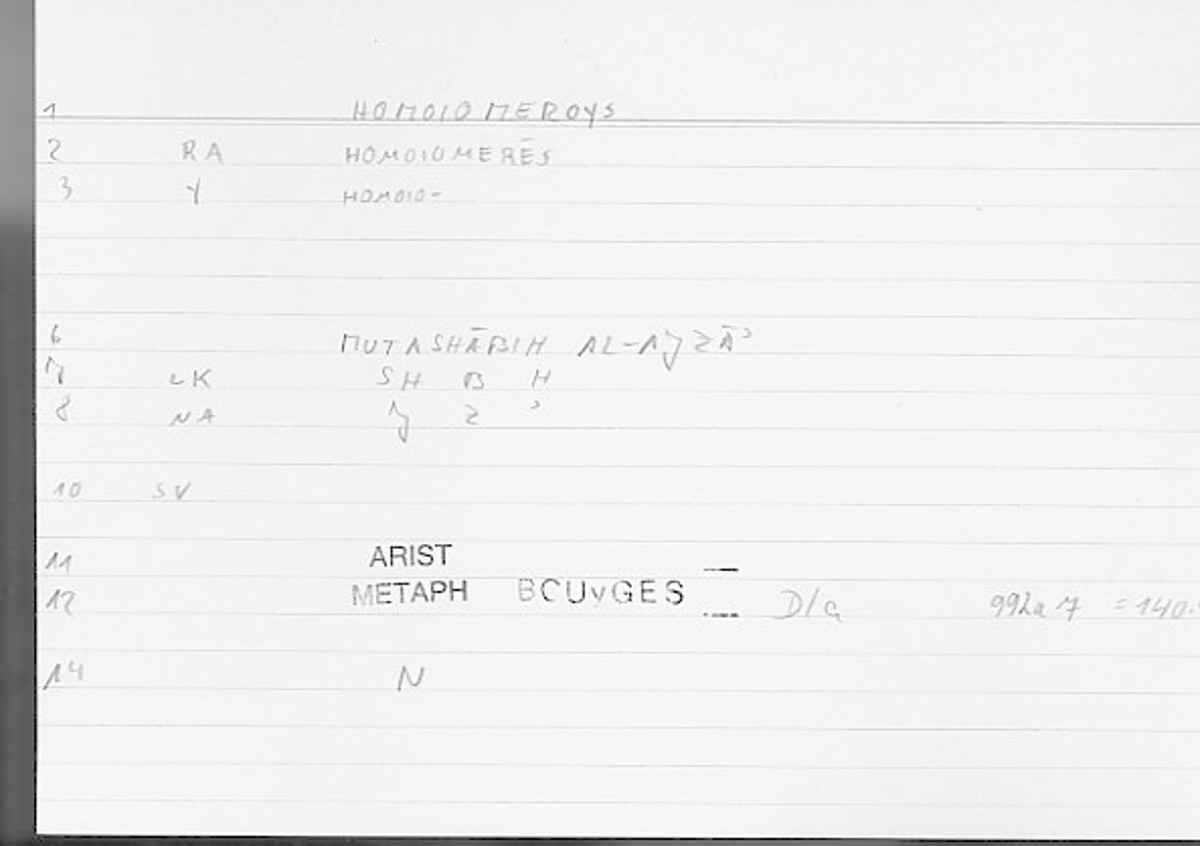 1 HOMOIOMEROYS
2 RA HOMOIOMERĒS
3 Y HOMOIO-
6 MUTASHĀBIH AL-AJZĀʾ
7 LK SH B H
8 NA J Z ʾ
10 SV
11 ARIST
12 METAPH BOUYGES D/a 992a7 = 140.
14 N